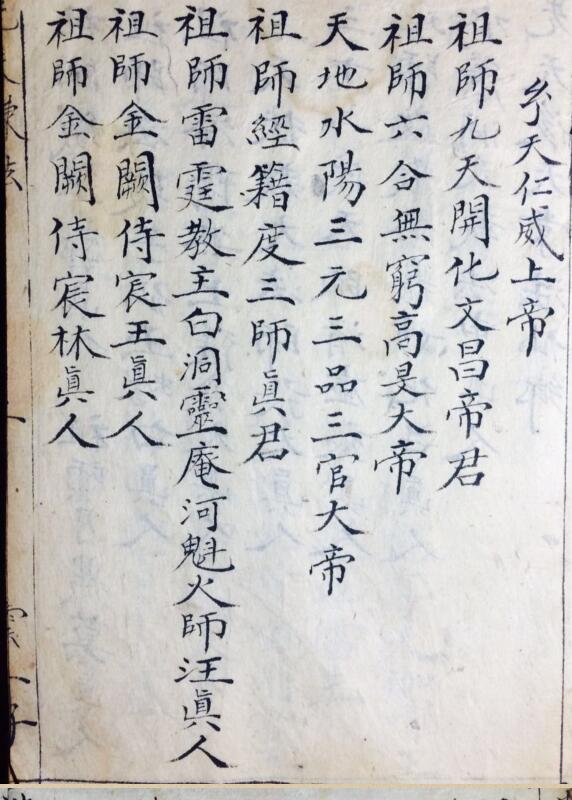 天仁威上帝
祖師九天開化文昌帝君
祖師六合無窮高旻大帝
天地水陽三元三品三官大帝
祖師經籍度三師眞君
祖師雷霆教主白洞靈庵河魁火師汪眞人
祖師金闕侍宸王眞人
祖師金闕侍宸林眞人